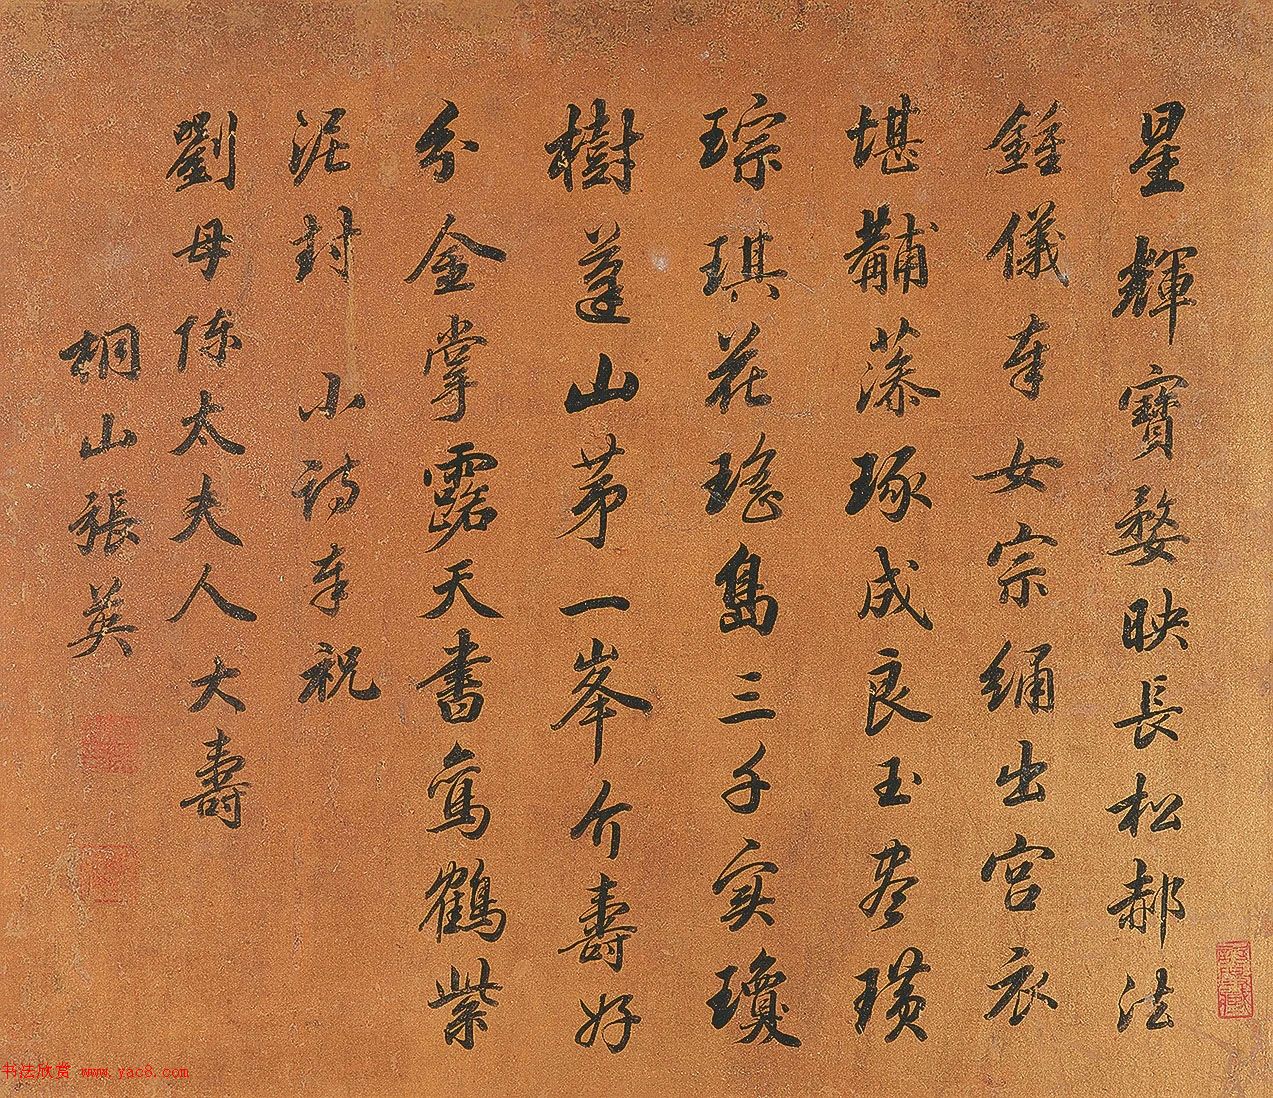 星輝寶婺映長松郝法
鍾儀奉女宗繡出宮衣
堪黼藻琢成良玉盡璜
琮琪花瑤島三千实瓊
樹蓬山苐一峯介壽好
分金掌露天書寫鶴紫
泥封 小詩奉祝
劉母陈太夫人大壽
桐山張英
书法欣赏 www.yac8.com